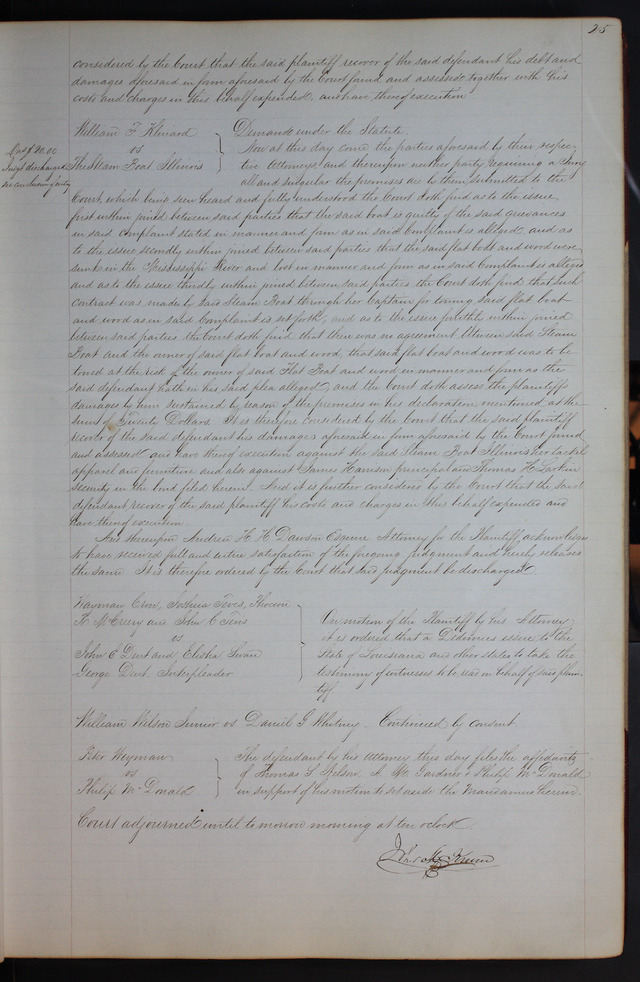 25
considered by the Court that the said plaintiff recover of the said defendant his debt and
damages aforesaid in form aforesaid by the Court found and assessed together with his
costs and charges in this behalf expended, and have thereof execution
William F
vs
The Steam Boat Illinois
Judgt discharged
Demand under the Statute.
Now at this day come the parties aforesaid by their respec-
tive Attorneys, and thereupon neither party requiring a Jury
all and singular the premises are by them submitted to the
Court, which being seen heard and fully understood the Court doth find as to the issue
first within joined between said parties that the said boat is guilty of the said grievances
in said complaint stated in manner and form as in said Complaint is alleged, and as
to the issue secondly within joined between said parties that the said flat boat and wood were
sunk in the Mississippi River and lost in manner and form as in said Complaint is alleged
and as to the issue thirdly within joined between said parties the Court doth find that such
contract was made by said Steam Boat through her Captain for towing said flat boat
and wood as in said Complaint is set forth, and as to the issue within joined
between said parties the Court doth find that there was no agreement between said Steam
Boat and the owner of said flat boat and wood, that said flat boat and wood was to be
towed at the risk of the owner of said Flat Boat and wood in manner and form as the
said defendant hath in his said plea alleged, and the Court doth assess the plaintiffs
damages by him sustained by reason of the premises in his declaration mentioned at the
sum of Twenty Dollars. It is therefore considered by the Court that the said plaintiff
recover of the said defendant his damages aforesaid in form aforesaid by the Court found
and assessed and have thereof execution against the said Steam Boat Illinois her tackle
apparel and furniture and also against James Harrison principal and Thomas H. Larkin
security in the bond filed herein. And it is further considered by the Court that the said
defendant recover of the said plaintiff his costs and charges in this behalf expended and
have thereof execution.
And thereupon Andrew H. H. Dawson Esquire Attorney for the Plaintiff, acknowledges
to have received full and entire satisfaction of the foregoing judgment and hereby releases
the same. It is therefore ordered by the Court that said judgment be discharged.
Wayman Crow, Joshua Tevis, Phocion
R. McCreery and John C Tevis
vs
John C Dent and Elisha Swan
George Dent. Interpleader
On motion of the Plaintiff by his Attorney
it is ordered that a Dedimus issue to the
State of Louisiana and other states to take the
testimony of witnesses to be read on behalf of said plain-
tiff
William Wilson Senior vs Daniel G Whitney Continued by consent
Peter Weyman
vs
Philip McDonald
The defendant by his Attorney this day files the affidavits
of Thomas S. Nelson, A. Gardner & Philip McDonald
in support of his motion to set aside the Mandamus herein.
Court adjourned until to morrow morning at ten oclock.